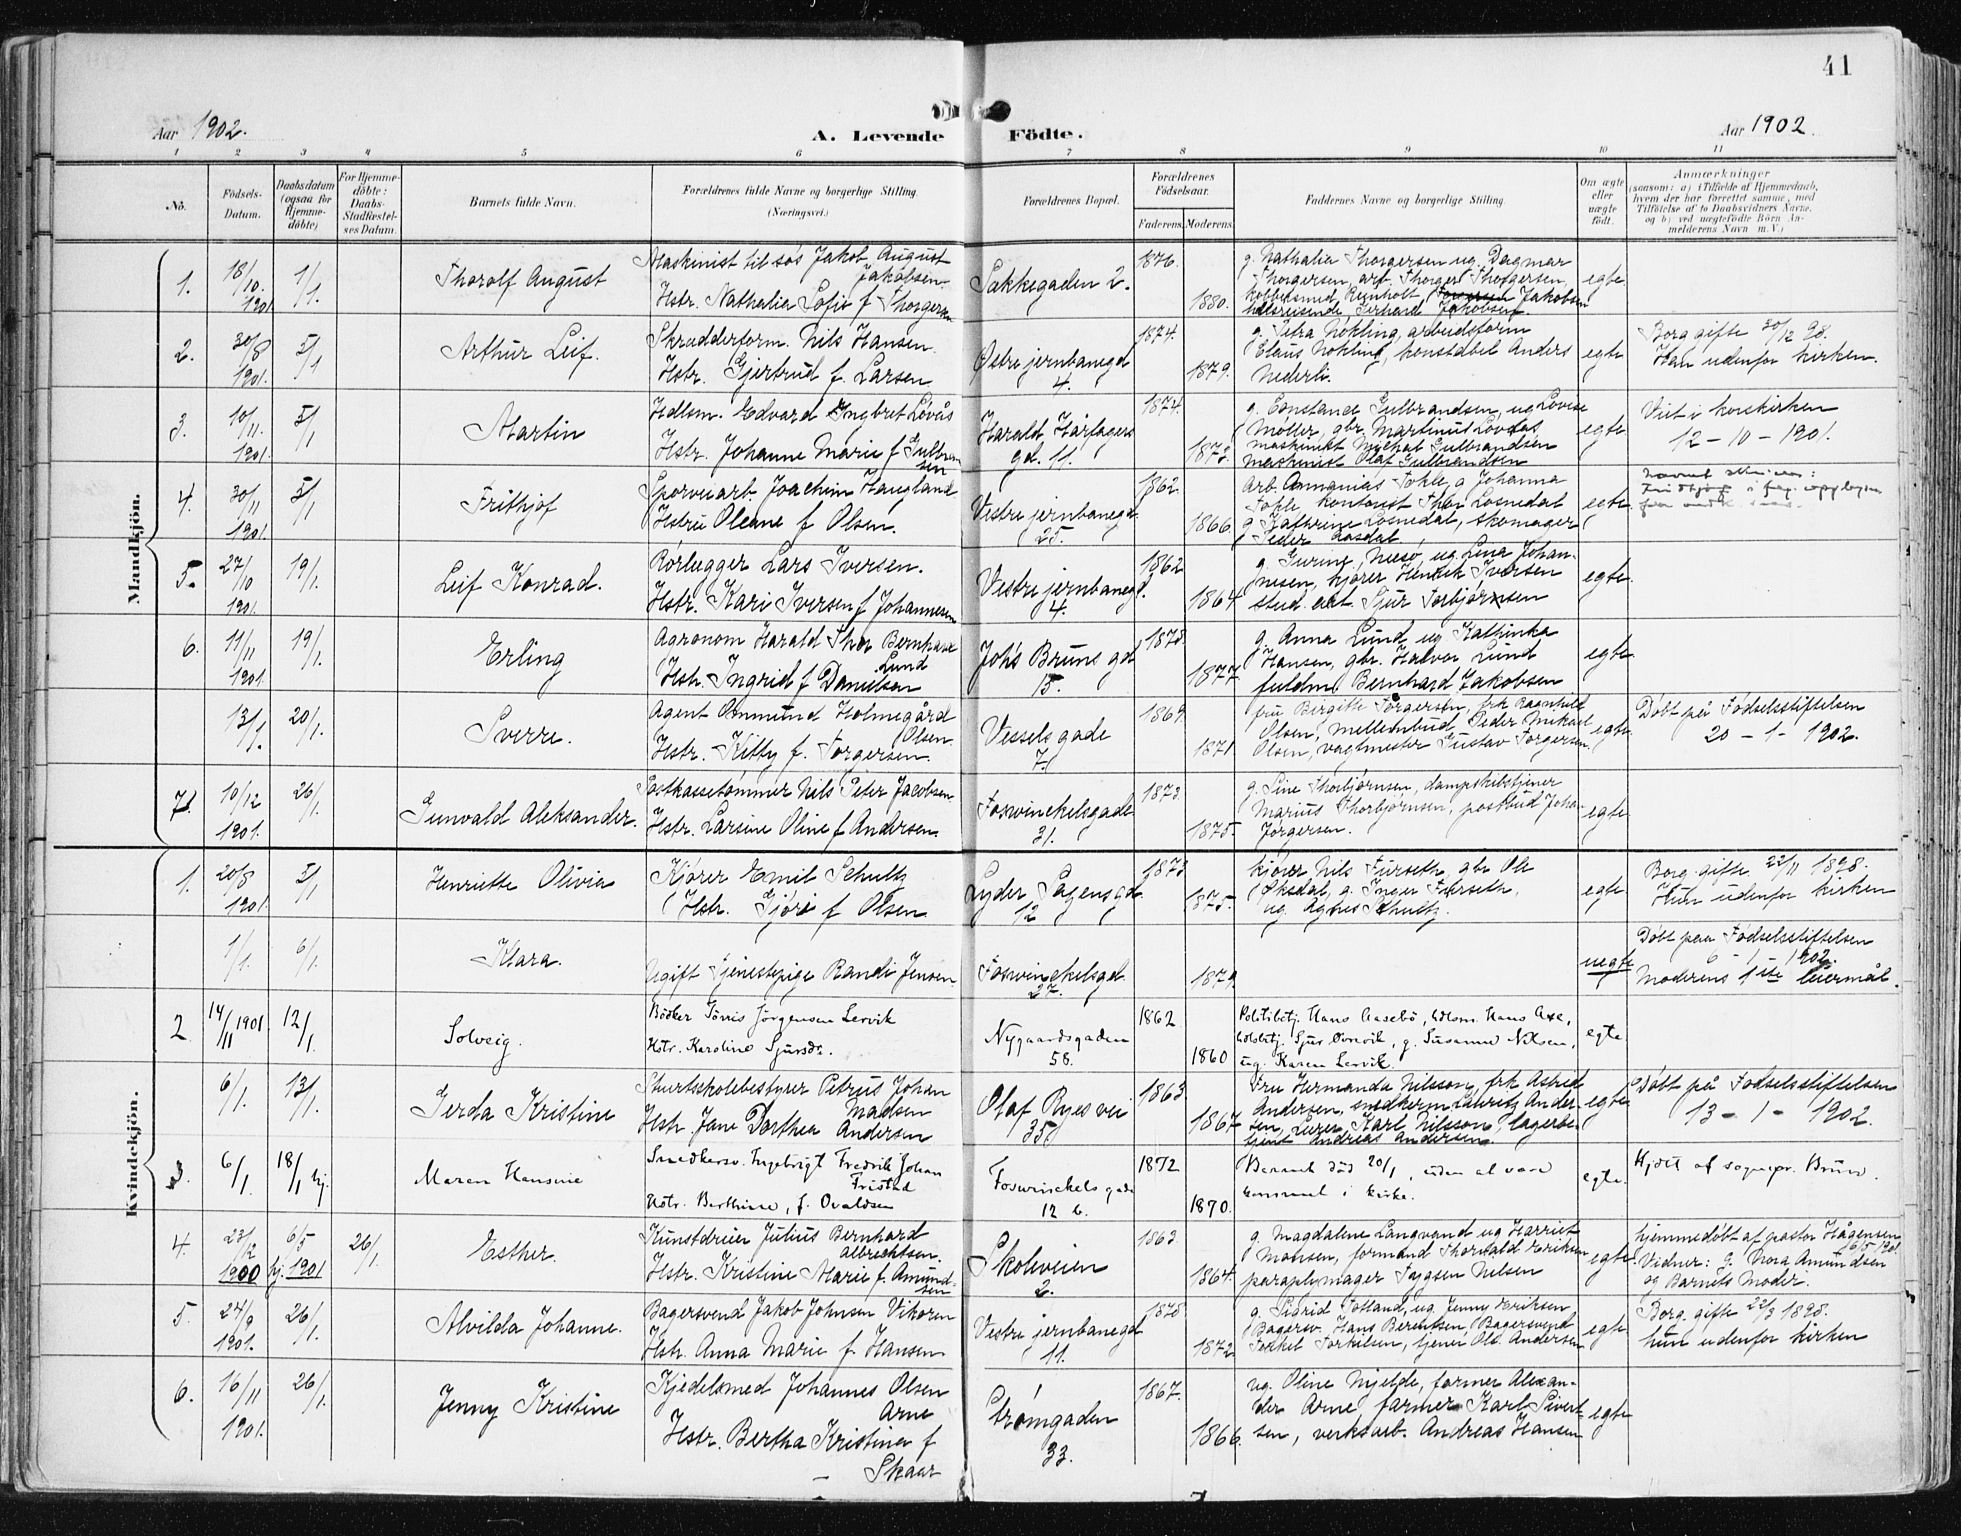 41
Aar 1902.
A. Levende Födte.
Aar 1902
1 2 3 4 5 6 7 8 9 10 11
No.
Födsels-Datum.
Daabsdatum (ogsaa for Hjemme-döbte)
For Hjemme-döbte: Daabs-Stadfæstel-ses Datum.
Barnets fulde Navn.
Forældrenes fulde Navne og borgerlige Stilling. (Næringsvei.)
Forældrenes Bopæl.
Forældrenes Födselsaar.
Faderens. Moderens.
Faddernes Navne og borgerlige Stilling.
Om ægte eller uægte födt.
Anmærkninger
(saasom: a) i Tilfælde af Hjemmedaab, hvem der har forrettet samme, med Tilföielse af to Daabsvidners Navne. og b) ved uægtefödte Börn An-melderens Navn m. V.)
Mandkjön.
1. 18/10. 1901 1/1. Tharolf August
Maskinist til søs Jakob August Jakobsen
Hstr. Nathalia Sofie f Thorgersen
Sakksgaden 2. 1876. 1880.
g. Nathalia Thorgersen ug. Dagmar
Thorgersen, arb. Thorger Thorgersen,
kobbersmed Reinholt, Jakobsen
egte
2. 30/8 1901. 5/1 Arthur Leif.
Skrædderform. Nils Hansen.
Hstr. Gjertrud f. Larsen
Østre jernbanegd 4. 1874. 1879.
g. Petra Nokling, arbeidsform
Claus Nokling, konstabel Anders
Nederli.
egte
Borg gifte 30/12 98.
Han udenfor kirken.
3. 10/11. 1901 5/1 Martin
Hdlsm. Edvard Ingbret Lövås
Hstr. Johanne Marie f Gulbrandsen
Harald Hårfagers gd. 11. 1874. 1873.
g. Constance Gulbrandsen, ug Lovise
Møller, gbr. Martinus Lovaas
maskinist Michal Gulbrandsen
maskinist Olaf Gulbrandsen
egte
Viet i korskirken
12-10-1901.
4. 30/11 1901. 5/1 Frithjof
Sporveiarb. Joachim Haugland
Hstru Oleane f Olsen.
Vestre jernbanegd 25. 1862. 1866
Arb. Ananias Tokle, g Johanna
Tokle, kontorist Thor Losnedal
g Kathrine Losnedal, skomager
Peder Aasdal.
egte
5. 27/10 1901. 19/1. Leif Konrad.
Rörlegger Lars Iversen.
Hstr. Kari Iversen f Johannesen
Vestre jernbanegd. 4. 1862 1864
g. Gurine Nesø, ug. Lena Johan-
nesen, kjører Henrik Iversen
stud. art Sjur Torbjørnsen
egte
6. 11/11 1901. 19/1. Erling
Agronom Harald Thor Bernhard Lund
Hstr. Ingrid f Danielsen
Johs Bruns gd 15. 1878. 1877
g. Anna Lund, ug Kathinka
Hansen, gbr. Halvor Lund
fuldm. Bernhard Jakobsen
egte
13/1. 20/1. Sverre.
Agent Ommund Holmegård Olsen
Hstr. Kitty f. Torgersen.
Vessels gade 7. 1869. 1871.
fru Birgitte Torgersen, frk Ragnhild
Olsen, mellembud Peder Mikael
Olsen, vagtmester Gustav Torgersen.
egte
Döbt på Födselsstiftelsen
20-1-1902.
7. 10/12 1901. 26/1. Gunvald Aleksander.
Postkassetömmer Nils Peter Jacobsen
Hstr. Larsine Oline f Andersen.
Foswinckelsgade 31. 1873. 1875.
g. Sine Thorbjørnsen, dampskibstjener
Marius Thorbjørnsen, postbud Johan
Jørgersen.
egte
Kvindekjön.
1. 20/8 1901. 5/1 Henriette Olivia
Kjører Emil Schultz
Hstr. Gjøri f Olsen
Lyder Sagensgd. 12 1873 1875.
kjører Nils Furseth, gbr Ole
Øksdal, g. Inger Furseth,
ug. Agnes Schultz.
egte
Borg. gifte 22/11 1898.
Hun udenfor kirken
1/1. 6/1. Klara.
Ugift Tjenestepige Randi Jensen
Foswinckelsgd 27. 1879.
uegte
Döbt paa Födselsstiftelsen
6 - 1 - 1902.
Moderens 1ste leiermål.
2 14/11 1901 12/1. Solveig.
Bödker Törris Jörgensen Lervik
Hstr. Karoline Sjursdr.
Nygaardsgaden 58. 1862 1860
Politibtj. Hans Aasebö, hdlsm. Hans Axe,
Sjur Övrevik, g. Susanne Nilsen,
ug. Karen Lervik.
egte
6/1. 13/1. Gerda Kristine
Stuertskolebestyrer Petrus Johan Madsen
Hstr Jane Dorthea Andersen
Olaf Ryes vei 35. 1863. 1867
Fru Hermanda Nilsson, frk Astrid
Andersen, snedkerm Lauritz Ander-
sen, Lærer Karl Nilsson, lagerbe-
tjent Andreas Andersen.
egte
Döbt på Födselsstiftelsen
13-1-1902.
3. 6/1. 18/1 hj. Maren Hansine
Snedkersv. Ingebrigt Fredrik Johan Fristad
Hstr. Berthine, f. Ovaldsen
Foswinckels gade 12 b. 1872 1870.
Barnet död 20/1, uden at være
kommet i kirke.
egte
Hjdöbt af sognepr. Bruun.
4. 23/12 1900 6/5 hj. 1901 26/1. Esther.
Kunstdreier Julius Bernhard Albrechtsen.
Hstr. Kristine Marie f. Amundsen
Skoleveien 2. 1863. 1864.
g. Magdalene Langvand ug Harriet
Monsen, formand Thorvald Eriksen
paraplymager Sygsen Nilsen
egte
hjemmedöbt af pastor Hågensen
6/5 1901.
Vidner: G. Nora Amundsen
og Barnets Moder.
5. 24/9 1901. 26/1. Alvilda Johanne.
Bagersvend Jakob Johnsen Vikören
Hstr. Anna Marie f. Hansen
Vestre jernbanegd 11. 1878. 1872.
g. Sigrid Totland, ug. Jenny Eriksen
Bagersv. Hans Berentsen, Bagersvend
Torkel Torkilsen, tjener Ole Andersen
egte
Borg. gifte 22/3 1898.
hun udenfor kirken
6. 16/11 1901. 26/1. Jenny Kristine
Kjedelsmed Johannes Olsen Arne
Hstr. Bertha Kristine f Skaar
Strömgaden 33. 1867. 1866.
ug. Oline Mjelde, farmer Alexan-
der Arne, farmer Karl Sivert-
sen, verksarb. Andreas Hansen
egte